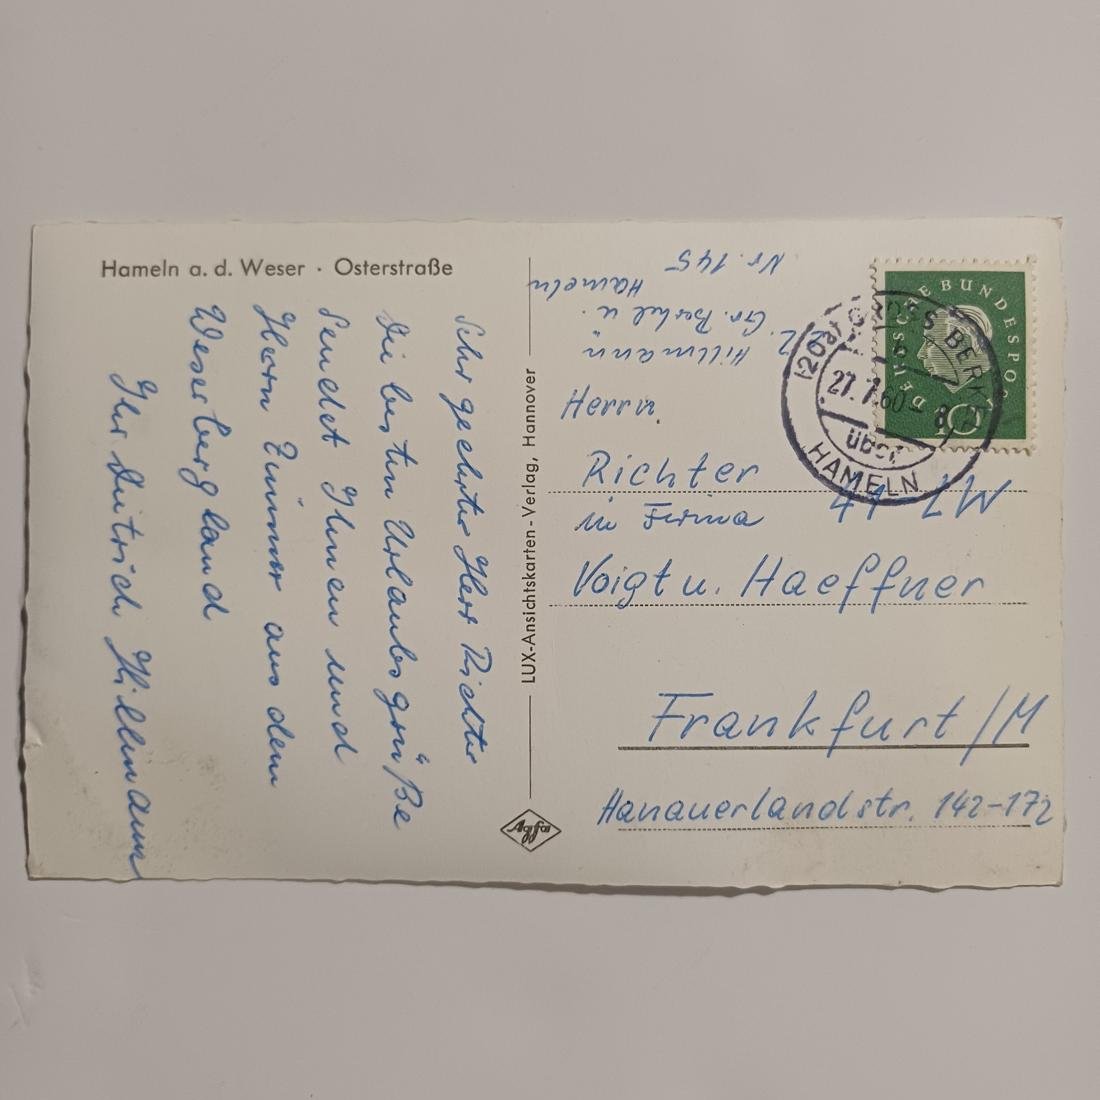 Hameln a. d. Weser · Osterstraße
Sehr geehrter Herr Richter
die besten Urlaubsgrüße
sendet Ihnen und
Herrn aus dem
Weserbergland
Ihr Dietrich Hillmann
LUX-Ansichtskarten-Verlag, Hannover
Agfa
Hillmann
z. Z. Gr. Berkel ü.
Hameln
Nr. 145
DEUTSCHE BUNDESPOST
10
(20a) GROSS BERKEL
27.7.60-8
über
HAMELN
Herrn
Richter
in Firma
Voigt u. Haeffner
Frankfurt/M
Hanauerlandstr. 142-172